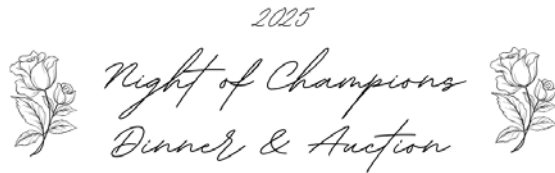 2025
Night of Champions
Dinner & Auction